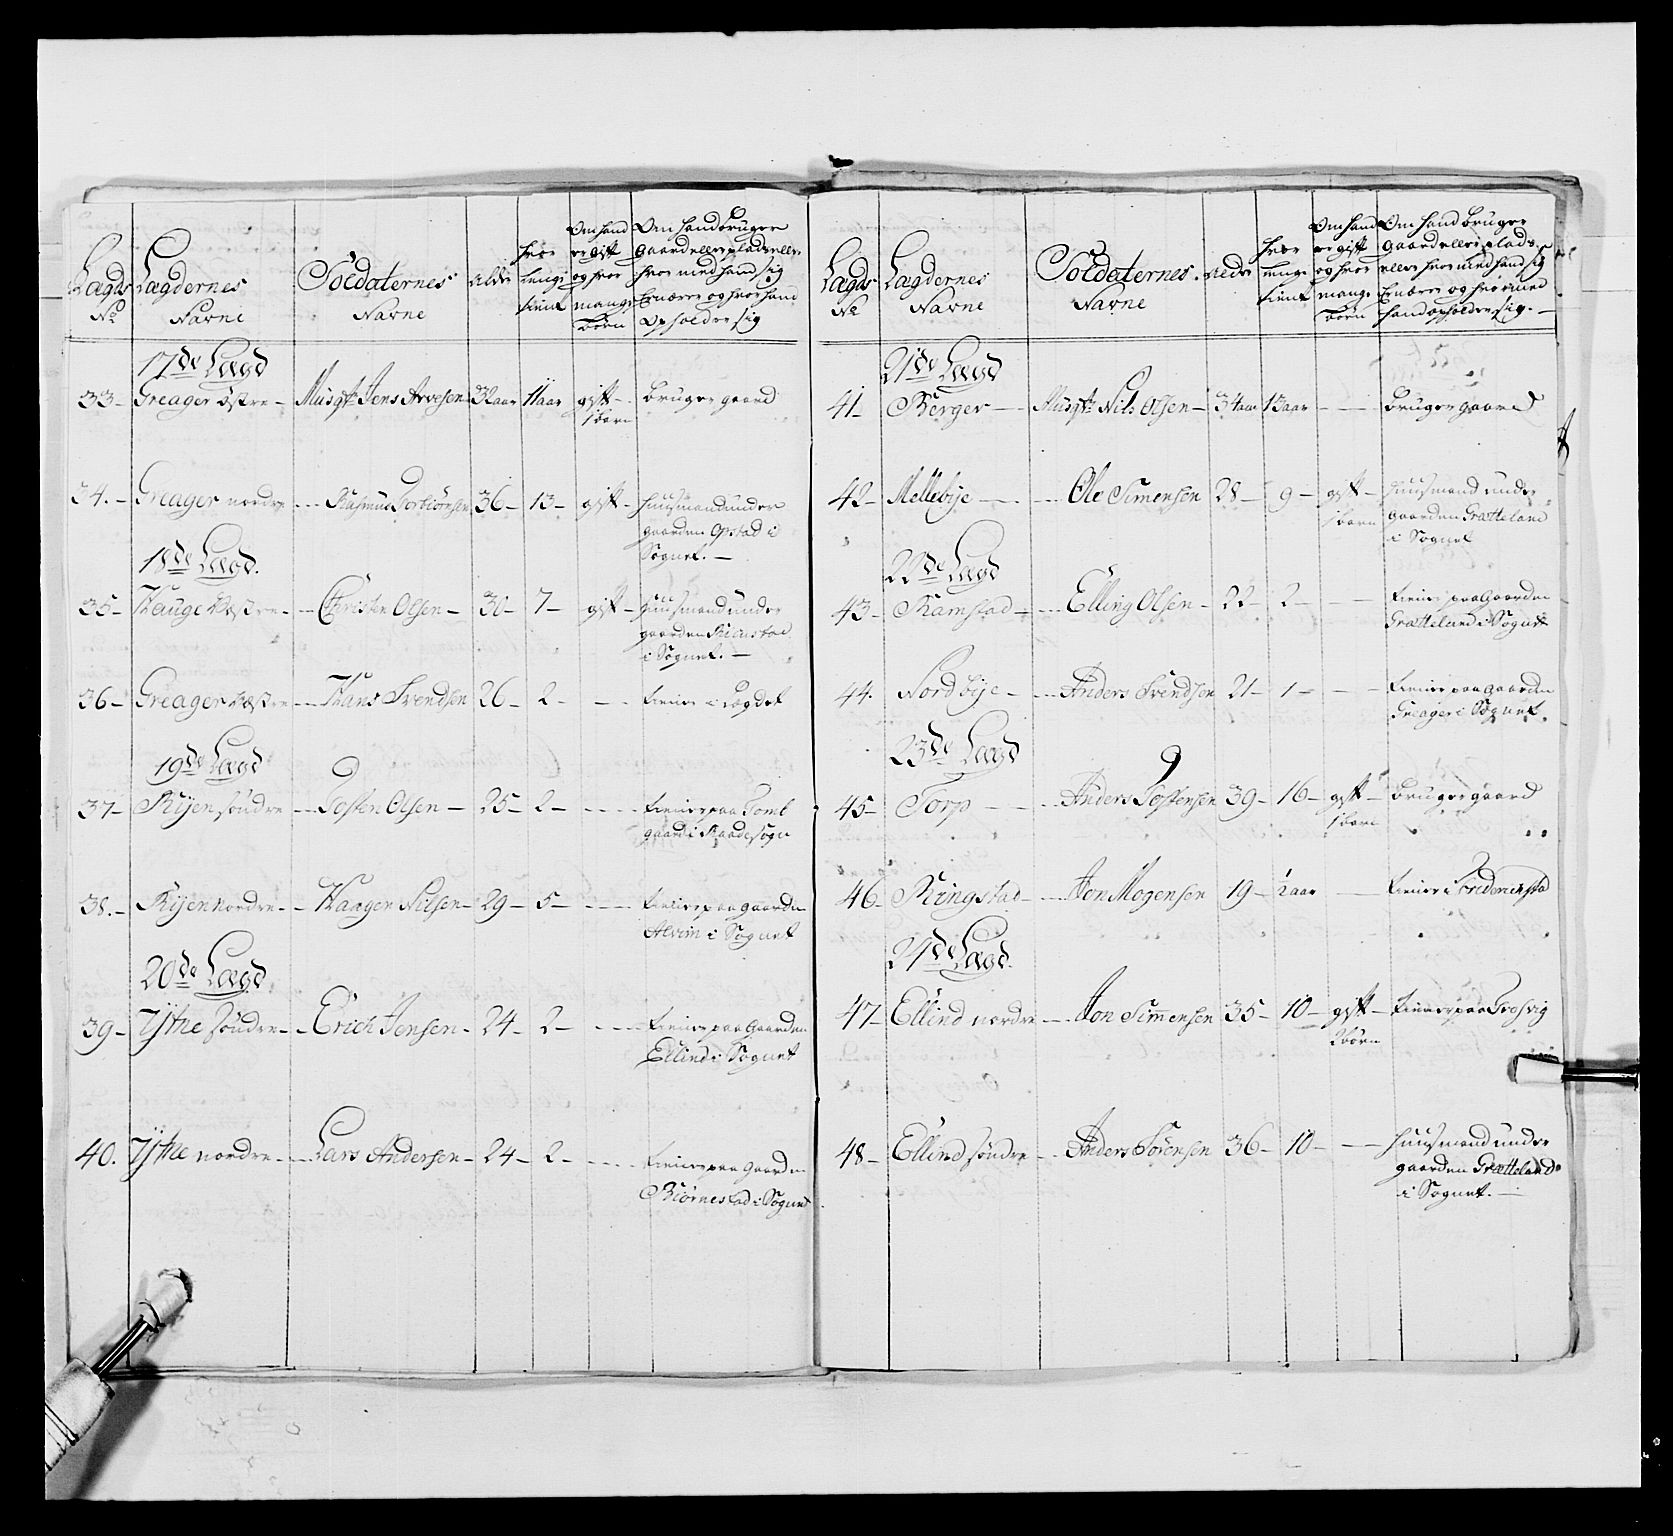 Lægds No
Lægdernes Navne
Soldaternes Navne
Alder
hvor lenge tient
Om hand er gift og hvor mange børn
Om hand bruger gaard eller plads eller hvor med hand sig Ernærer og hvor hand opholder sig
17de Lægd
33 - Greager Østre - Musqt: Jens Arvesen 32 aar 11 aar gift - 1 barn bruger gaard
34. - Greager nordre - Rasmus Torbiörnsen 36 - 13 - gift - huusmand under
gaarden Opstad i
Sognet. -
18de Lægd.
35 - Hauge Væstre - Christen Olsen - 30 - 7 - gift - huusmand under
gaarden
i Sognet. -
36 - Greager Væstre - Hans Svendsen 26 - 2 - - tiener i Lægdet
19de Lægd
37 - Rijen söndre - Tosten Olsen - 25 - 2 - - tiener paa Tomb
gaard i Raade sogn
38. - Rijen nordre - Haagen Nilsen - 29 - 5 - - tiener paa gaarden
Alvim i Sognet
20de Lægd
39 - Ijtne Söndre - Erich Jensen - 24 - 2 - - tiener paa Gaarden
Ellind i Sognet
40. Ijtne nordre - Lars Andersen - 24 - 2 - - tiener paa gaarden
Biørnestad i Sognet
Lægds No
Lægdernes Navne
Soldaternes Navne
Alder
hvor lenge tient
Om hand er gift og hvor mange børn
Om hand bruger gaard eller plads eller hvor med hand sig Ernærer og hvor med hand opholder sig. -
21de Lægd
41 - Berger - Musqt: Nils Olsen - 34 aar 13 aar - - bruger gaard
42 - Mellebije - Ole Simensen 28 - 9 - gift - 1 barn huusmand under
gaarden Grætteland
i Sognet
22de Lægd
43 - Kamstad - Elling Olsen - 22 - 2 - - tiener paa Gaarden
Grætteland i Sognet
44. Nordbije - Anders Svendsen 21 - 1 - - tiener paa gaarden
Greager i Sognet.
23de Lægd
45 - Torp - Anders Tostensen 39 - 16 - gift - 1 barn bruger gaard
46 - Ringstad - Jon Mogensen 19 - ½ aar - tiener i Frederichsta
24de Lægd.
47 - Ellind nordre - Jon Simensen 35 - 10 - gift - 2 börn tiener paa Tresvig
48 - Ellind söndre - Anders Sörensen 36 - 10 - - huusmand under
gaarden Grætteland
i Sognet. -